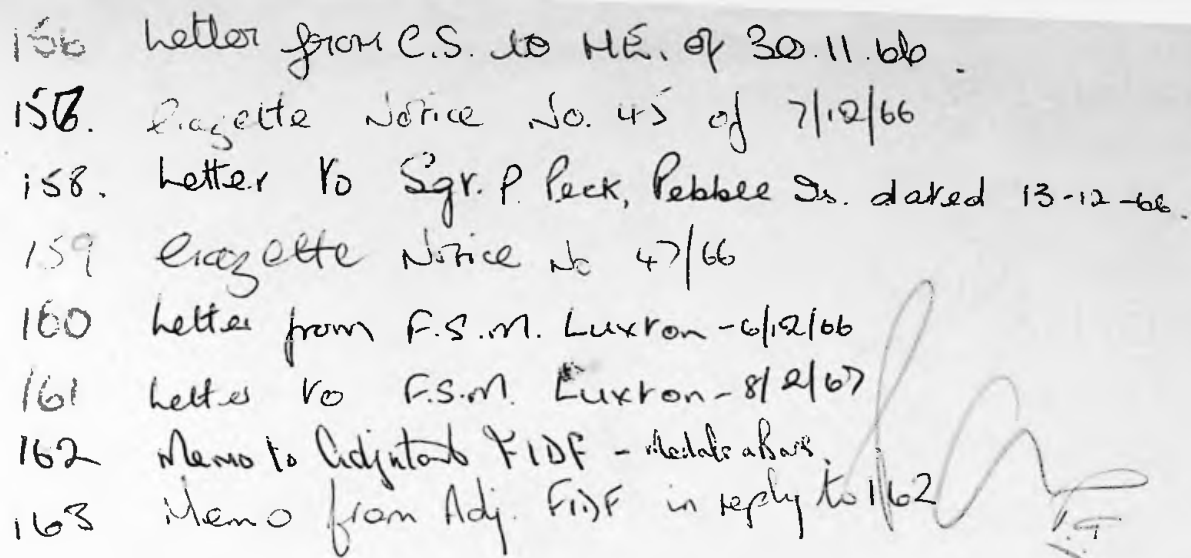 156 Letter from C.S. to H.E. of 30.11.66.
157. Gazette Notice No. 45 of 7/12/66
158. Letter to Sgt. P. Peck, Pebble Is. dated 13-12-66.
159 Gazette Notice No 47/66
160 Letter from F.S.M. Luxton - 6/12/66
161 Letter to F.S.M. Luxton - 8/2/67
162 Memo to Adjutant FIDF - Medals & Bars.
163 Memo from Adj. FIDF in reply to 162